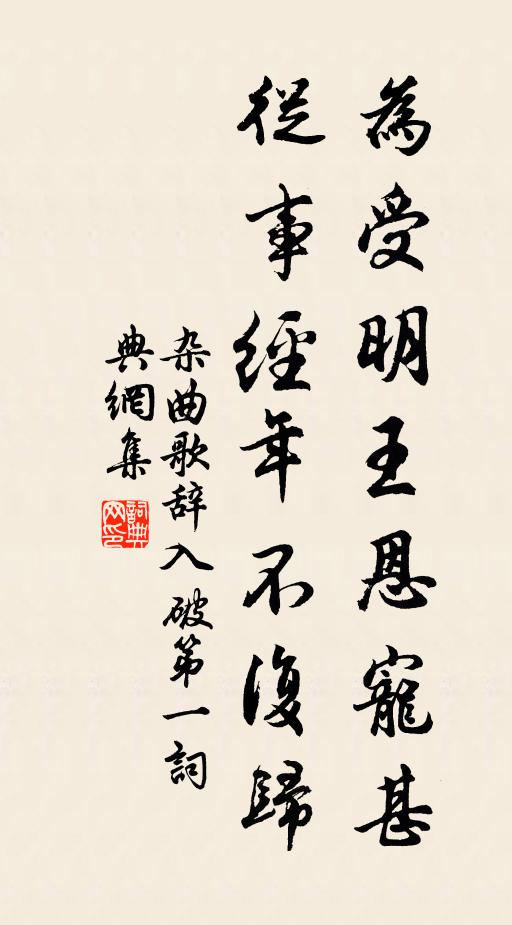 為受明王恩寵甚
從事經年不復歸
杂曲歌辞入破第一詞
典網集
詞典
网印